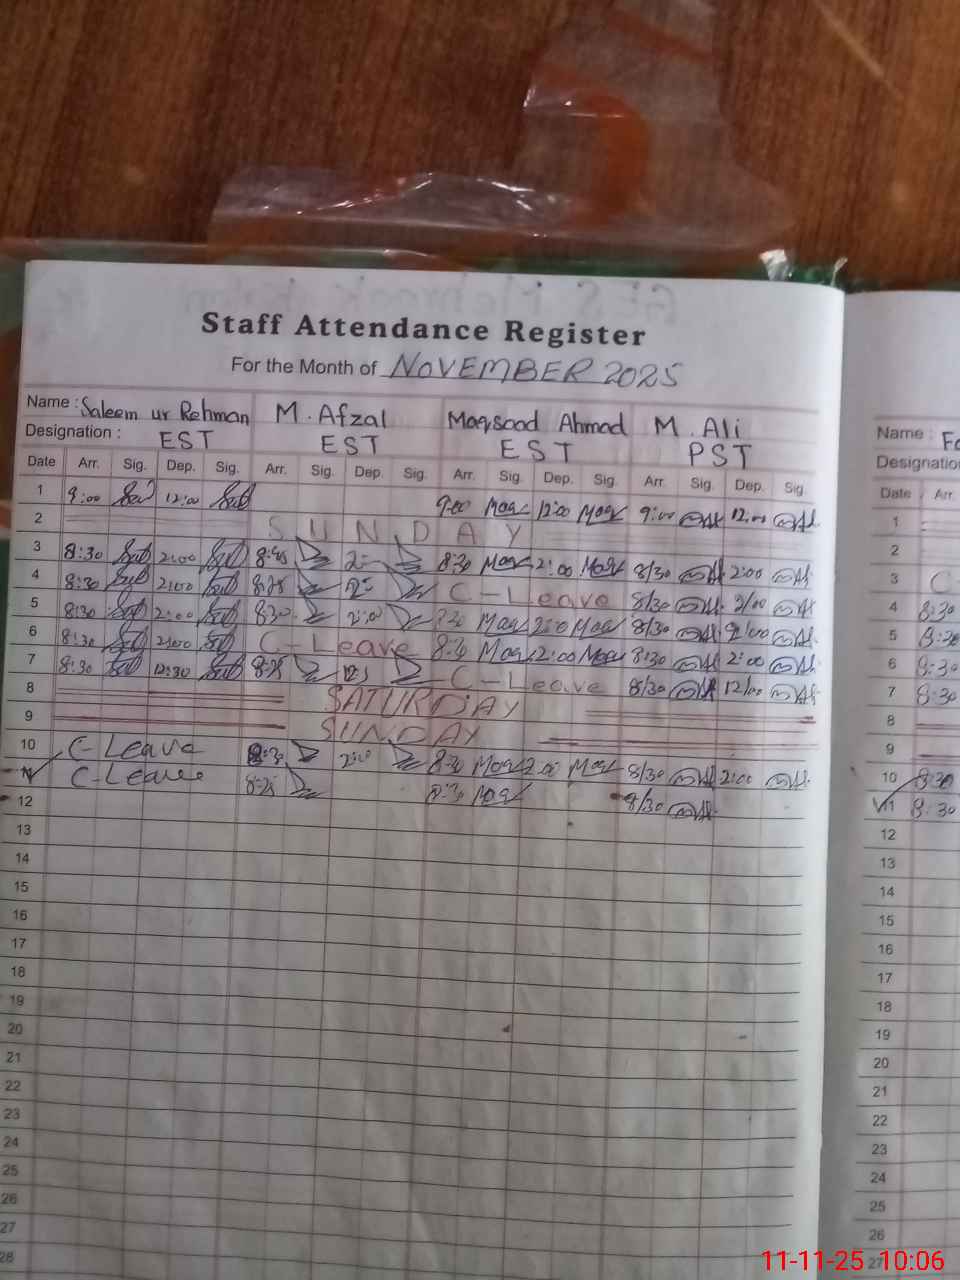 Staff Attendance Register
For the Month of NOVEMBER 2025
Name : Saleem ur Rehman M. Afzal Maqsood Ahmad M. Ali
Designation : EST EST EST PST
Date Arr. Sig. Dep. Sig. Arr. Sig. Dep. Sig. Arr. Sig. Dep. Sig. Arr. Sig. Dep. Sig.
1 9:00 12:00 9:00 Maq 12:00 Maq 9:00 12:00
2 SUNDAY
3 8:30 2:00 8:30 Maq 2:00 Maq 8/30 2:00
4 8:30 2:00 8:25 C-Leave 8/30 2/00
5 8:30 2:00 8:30 2:00 8:30 Maq 2:00 Maq 8/30 2:00
6 8:30 2:00 C-Leave 8:30 Maq 2:00 Maq 8:30 2:00
7 8:30 12:30 8:25 C-Leave 8/30 12/00
8 SATURDAY
9 SUNDAY
10 C-Leave 8:30 2:00 8:30 Maq 2:00 Maq 8/30 2:00
C-Leave 8:25 8:30 Maq 8/30
12
13
14
15
16
17
18
19
20
21
22
23
24
25
26
27
28
Name :
Designatio
Date Arr.
1
2
3 C
4 8:30
5 8:30
6 8:30
7 8:30
8
9
10 8:30
11 8:30
12
13
14
15
16
17
18
19
20
21
22
23
24
25
26
27
11-11-25 10:06